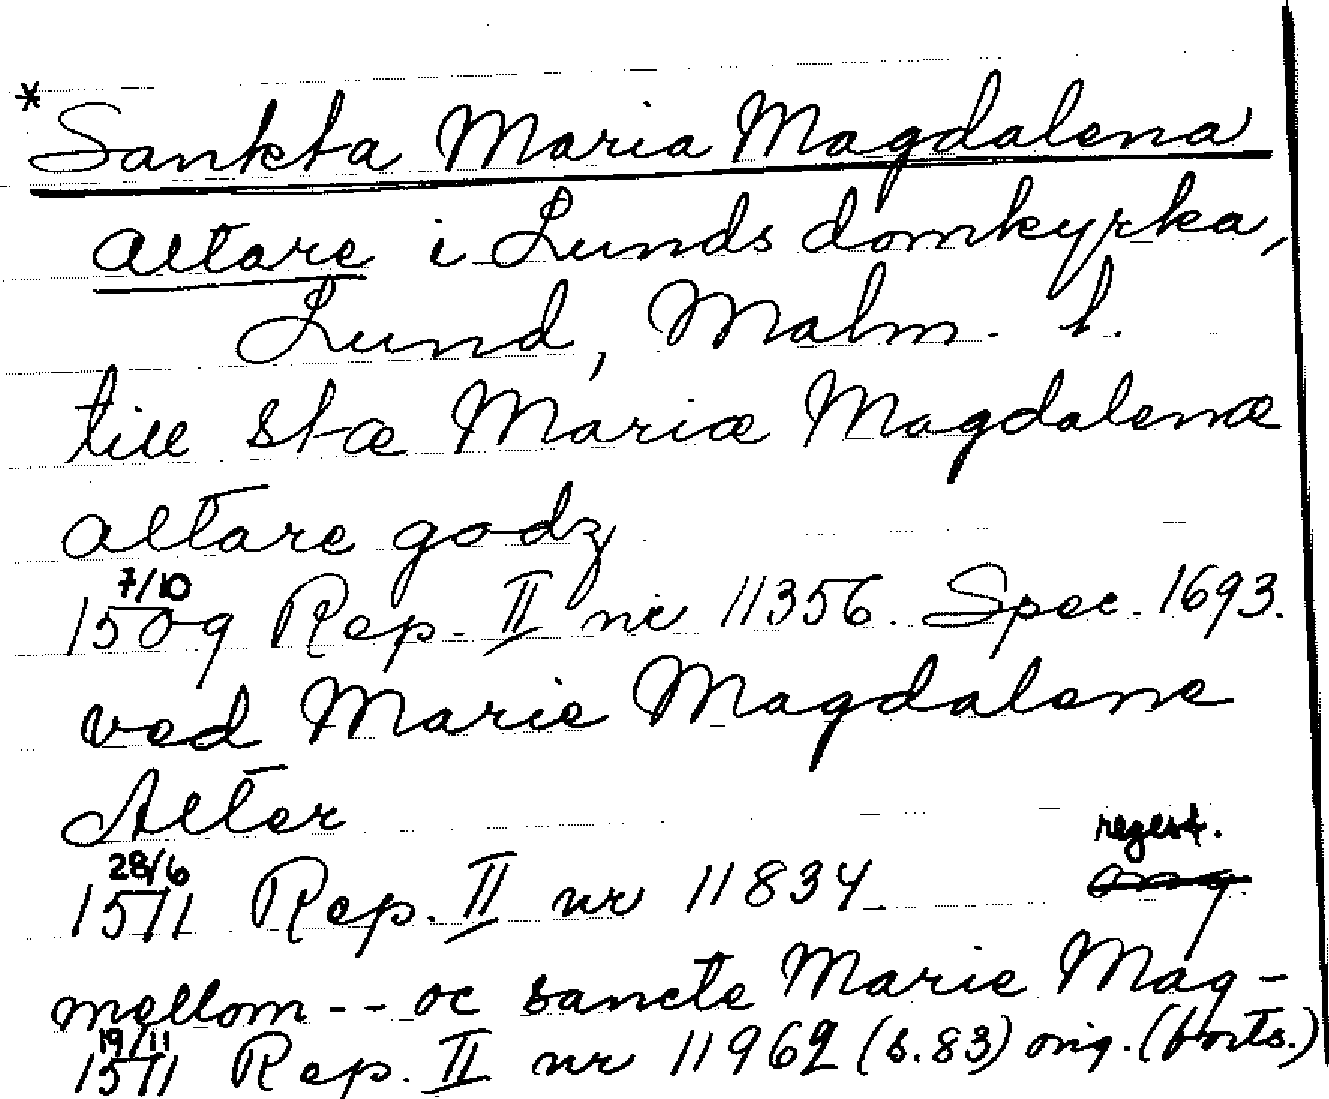 * Sankta Maria Magdalena
altare i Lunds domkyrka,
Lund, Malm. l.
till Stæ Mariæ Magdalenæ
altare godz
7/10
1509 Rep. II nr 11356. Spec. 1693.
ved Marie Magdalene
Alter
regest.
28/6
1511 Rep. II nr 11834 orig.
mellom -- oc sancte Marie Mag-
19/11
1511 Rep. II nr 11962 (s. 83) orig. (forts.)